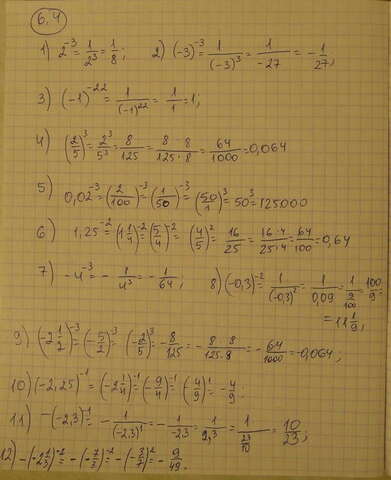 6.4
1) 2^{-3} = 1/2^3 = 1/8; 2) (-3)^{-3} = 1/(-3)^3 = 1/-27 = -1/27;
3) (-1)^{-22} = 1/(-1)^{22} = 1/1 = 1;
4) (2/5)^3 = 2^3/5^3 = 8/125 = 8·8/125·8 = 64/1000 = 0,064
5) 0,02^{-3} = (2/100)^{-3} = (1/50)^{-3} = (50/1)^3 = 50^3 = 125000
6) 1,25^{-2} = (1 1/4)^{-2} = (5/4)^{-2} = (4/5)^2 = 16/25 = 16·4/25·4 = 64/100 = 0,64
7) -4^{-3} = -1/4^3 = -1/64; 8) (-0,3)^{-2} = 1/(-0,3)^2 = 1/0,09 = 1/(9/100) = 100/9 =
= 11 1/9;
9) (-2 1/2)^{-3} = (-5/2)^{-3} = (-2/5)^3 = -8/125 = -8·8/125·8 = -64/1000 = -0,064;
10) (-2,25)^{-1} = (-2 1/4)^{-1} = (-9/4)^{-1} = (-4/9)^1 = -4/9.
11) -(-2,3)^{-1} = -1/(-2,3)^1 = -1/-2,3 = 1/2,3 = 1/(23/10) = 10/23;
12) -(-2 1/3)^{-2} = -(-7/3)^{-2} = -(-3/7)^2 = -9/49.